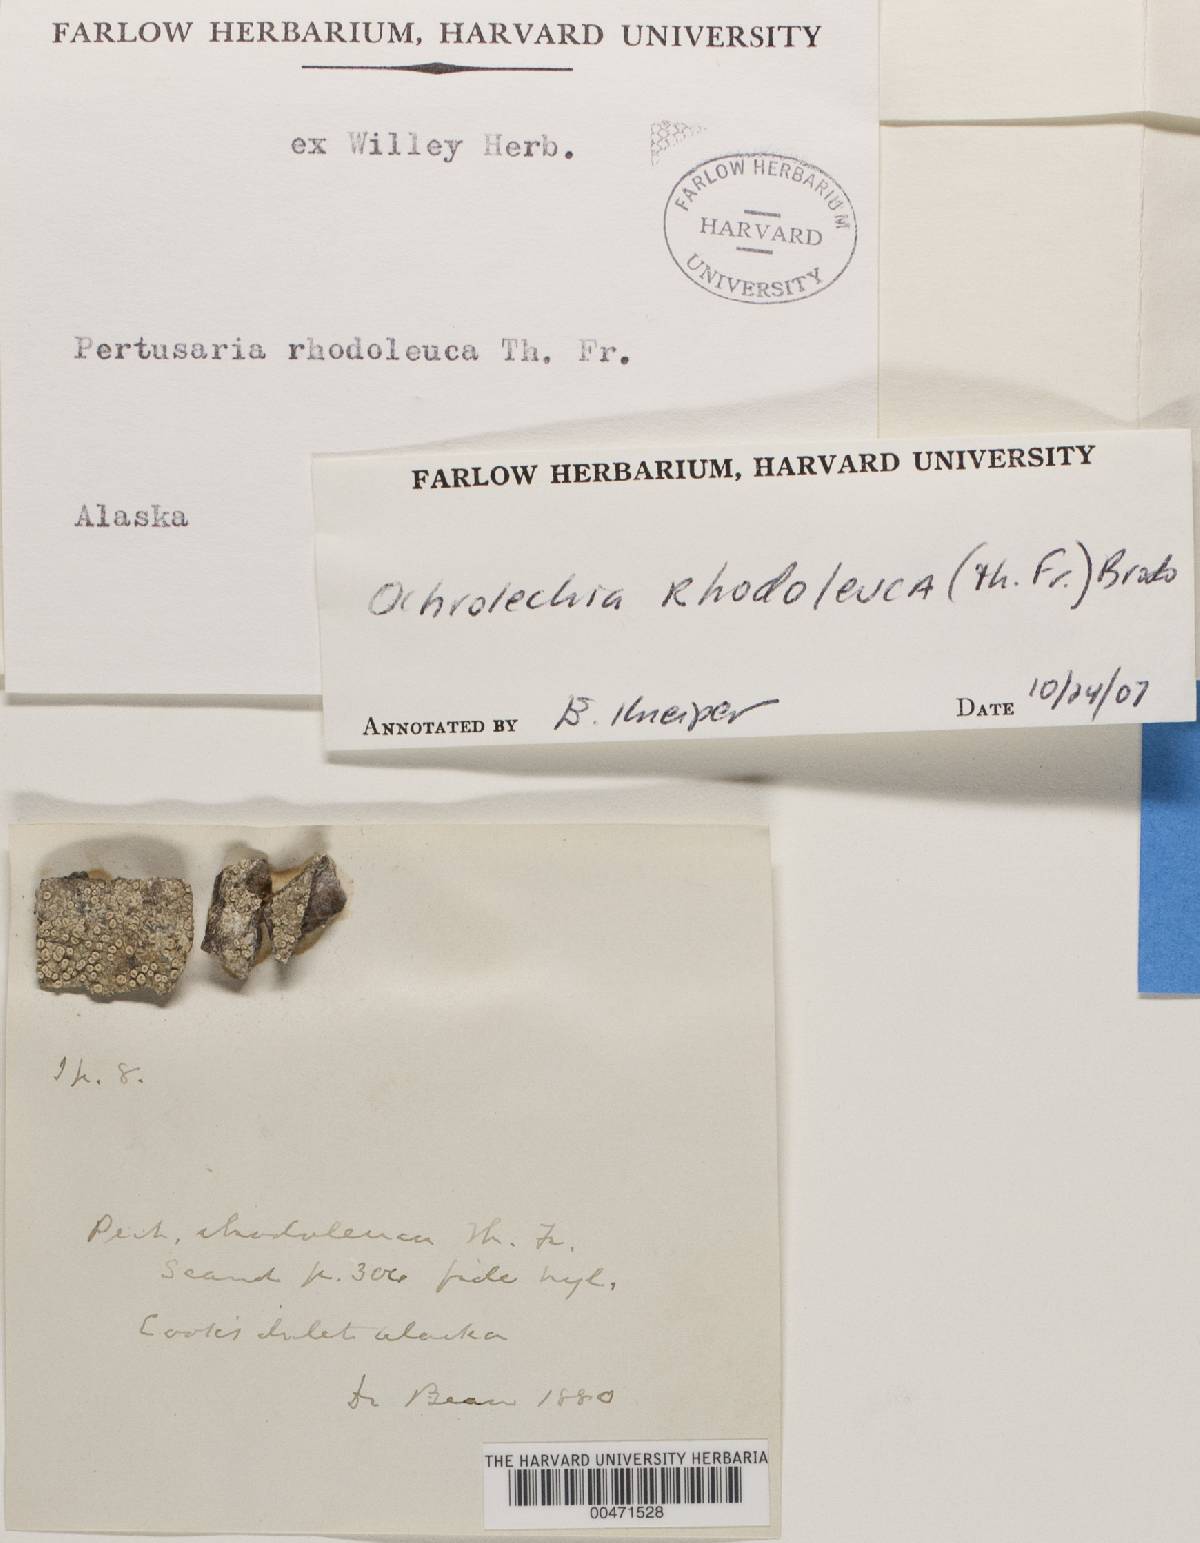 FARLOW HERBARIUM, HARVARD UNIVERSITY
ex Willey Herb.
FARLOW HERBARIUM
HARVARD
UNIVERSITY
Pertusaria rhodoleuca Th. Fr.
Alaska
FARLOW HERBARIUM, HARVARD UNIVERSITY
Ochrolechia Rhodoleuca (Th. Fr.) Brodo
ANNOTATED BY B. Kneiper DATE 10/24/07
8.
Pert. rhodoleuca Th. Fr.
Scand p. 306 fide Nyl.
Cook's Inlet Alaska
Dr Bean 1880
THE HARVARD UNIVERSITY HERBARIA
00471528